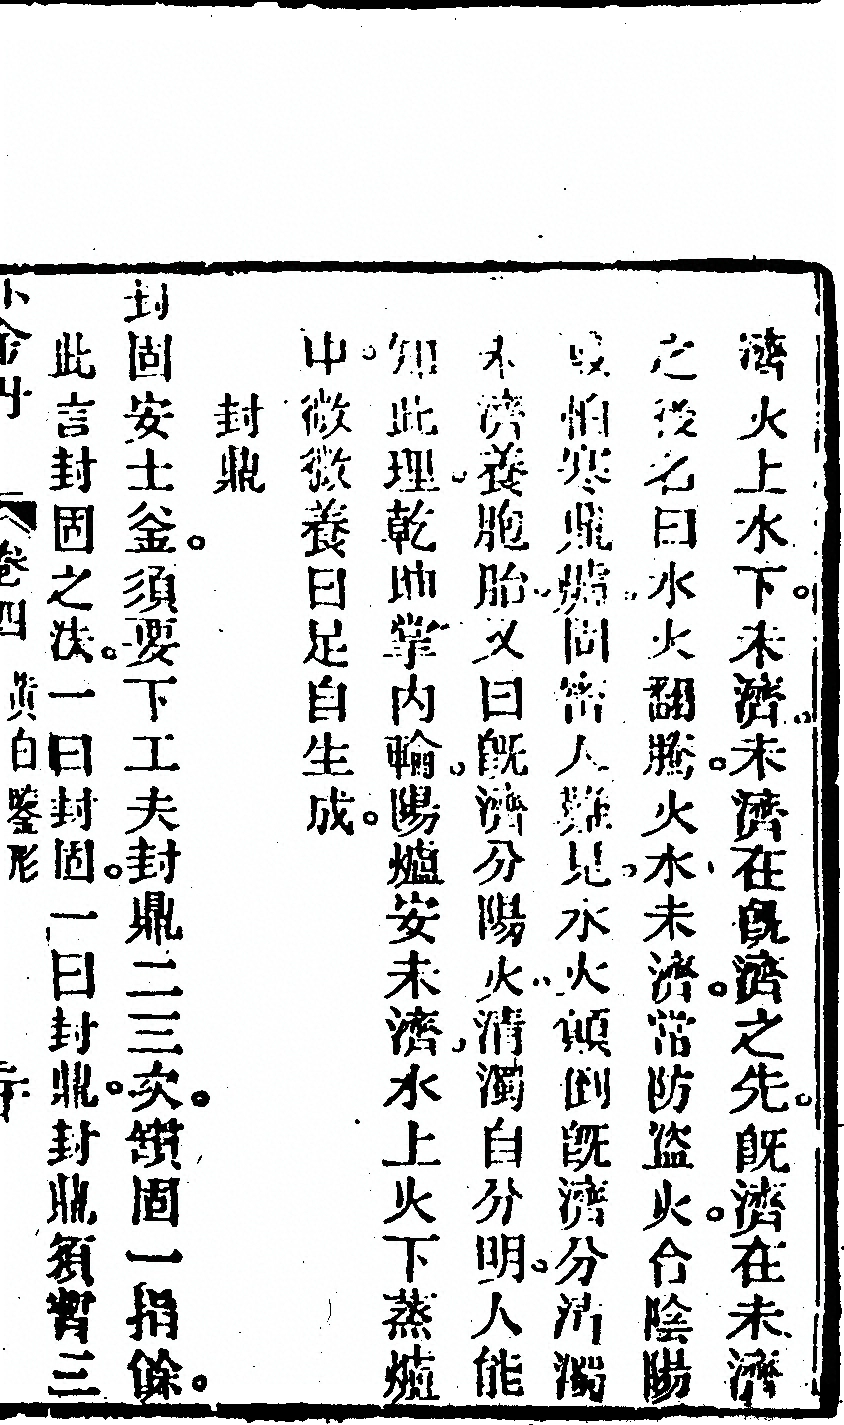 濟火上水下。未濟。未濟在旣濟之先。旣濟在未濟
之後名曰水火翻騰。火水未濟。常防盜火。合陰陽
怕寒鼎。固密人難見。水火顛倒旣濟分清濁
未濟養胞胎。又曰旣濟分陽火。清濁自分明。人能
知此理。乾坤掌内輪。陽爐安未濟。水上火下蒸爐
中。微微養日足自生成。
封鼎
封固安土釜。須要下工夫封鼎二三次。鑽固一捐餘。
此言封固之法。一曰封固。一曰封鼎。封鼎須暫三
外金丹 卷四 眞白鑒形